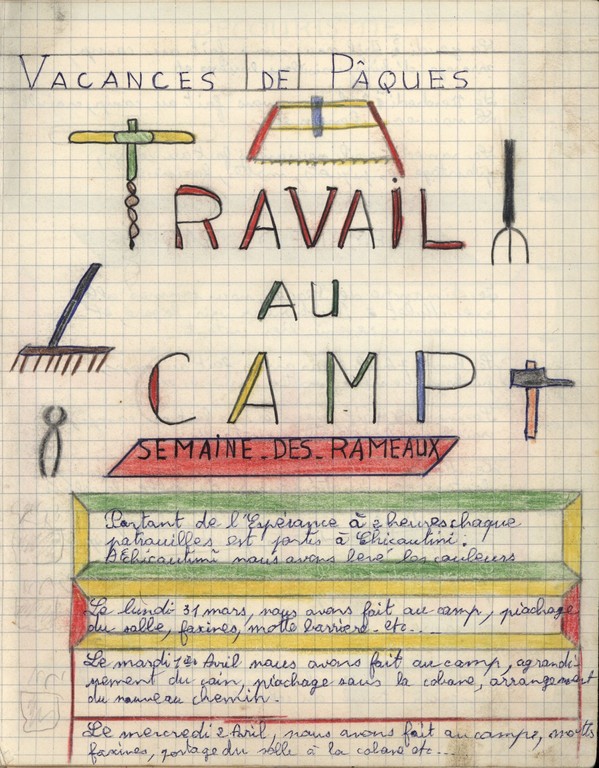 VACANCES DE PÂQUES
TRAVAiL
AU
CAMP
SEMAiNE_DES_RAMEAUX
Partant de l'Espérance à 2 heures chaque
patrouilles est partis à Chicautini.
A Chicautimi nous avons levé les couleurs
Le lundi 31 mars, nous avons fait au camp, piochage
du salle, faxines, motte barrière. etc...
Le mardi 1er Avril nous avons fait au camp, agrandi-
ssement du coin, piochage sous la cabane, arrangement
du nouveau chemin.
Le mercredi 2 Avril, nous avons fait au campe, mottes
faxines, portage du salle à la cabane etc...